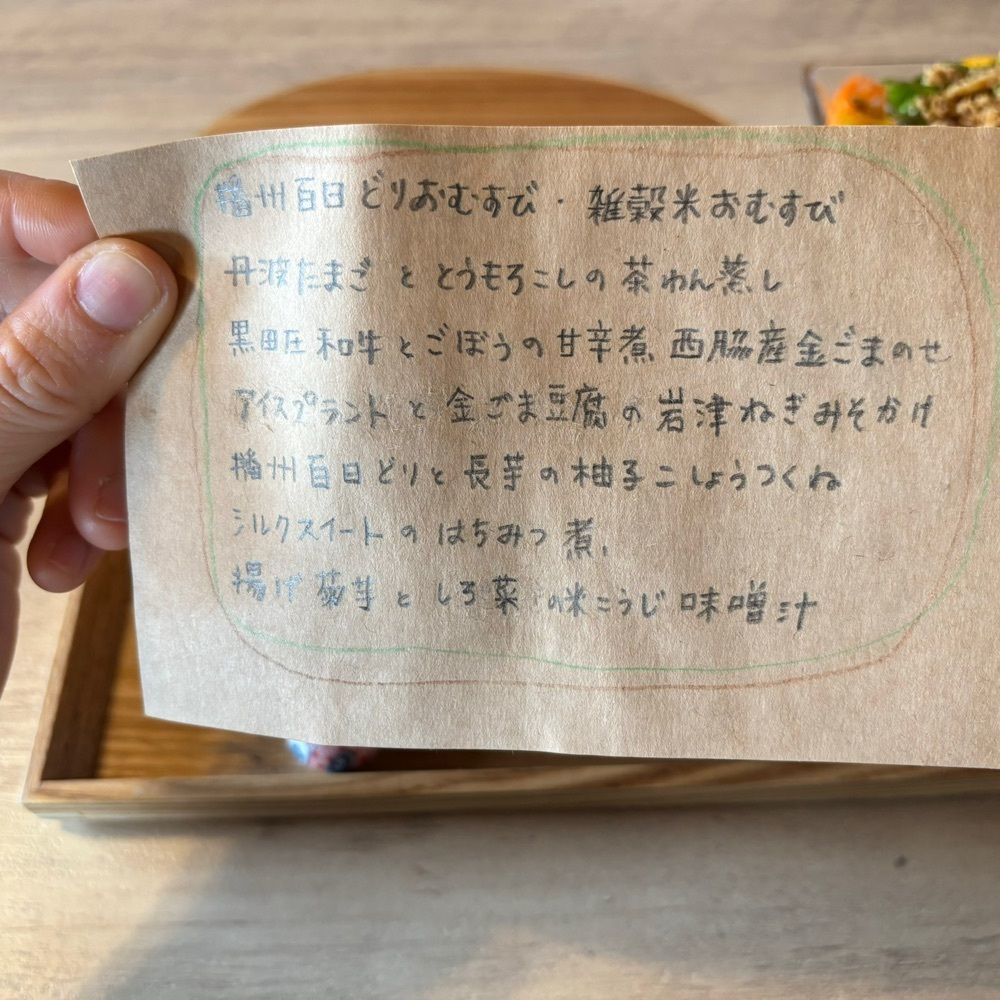 播州百日どりおむすび・雑穀米おむすび
丹波たまごととうもろこしの茶わん蒸し
黒田庄和牛とごぼうの甘辛煮 西脇産金ごまのせ
アイスプラントと金ごま豆腐の岩津ねぎみそかけ
播州百日どりと長芋の柚子こしょうつくね
シルクスイートのはちみつ煮、
揚げ菊芋としろ菜の米こうじ味噌汁